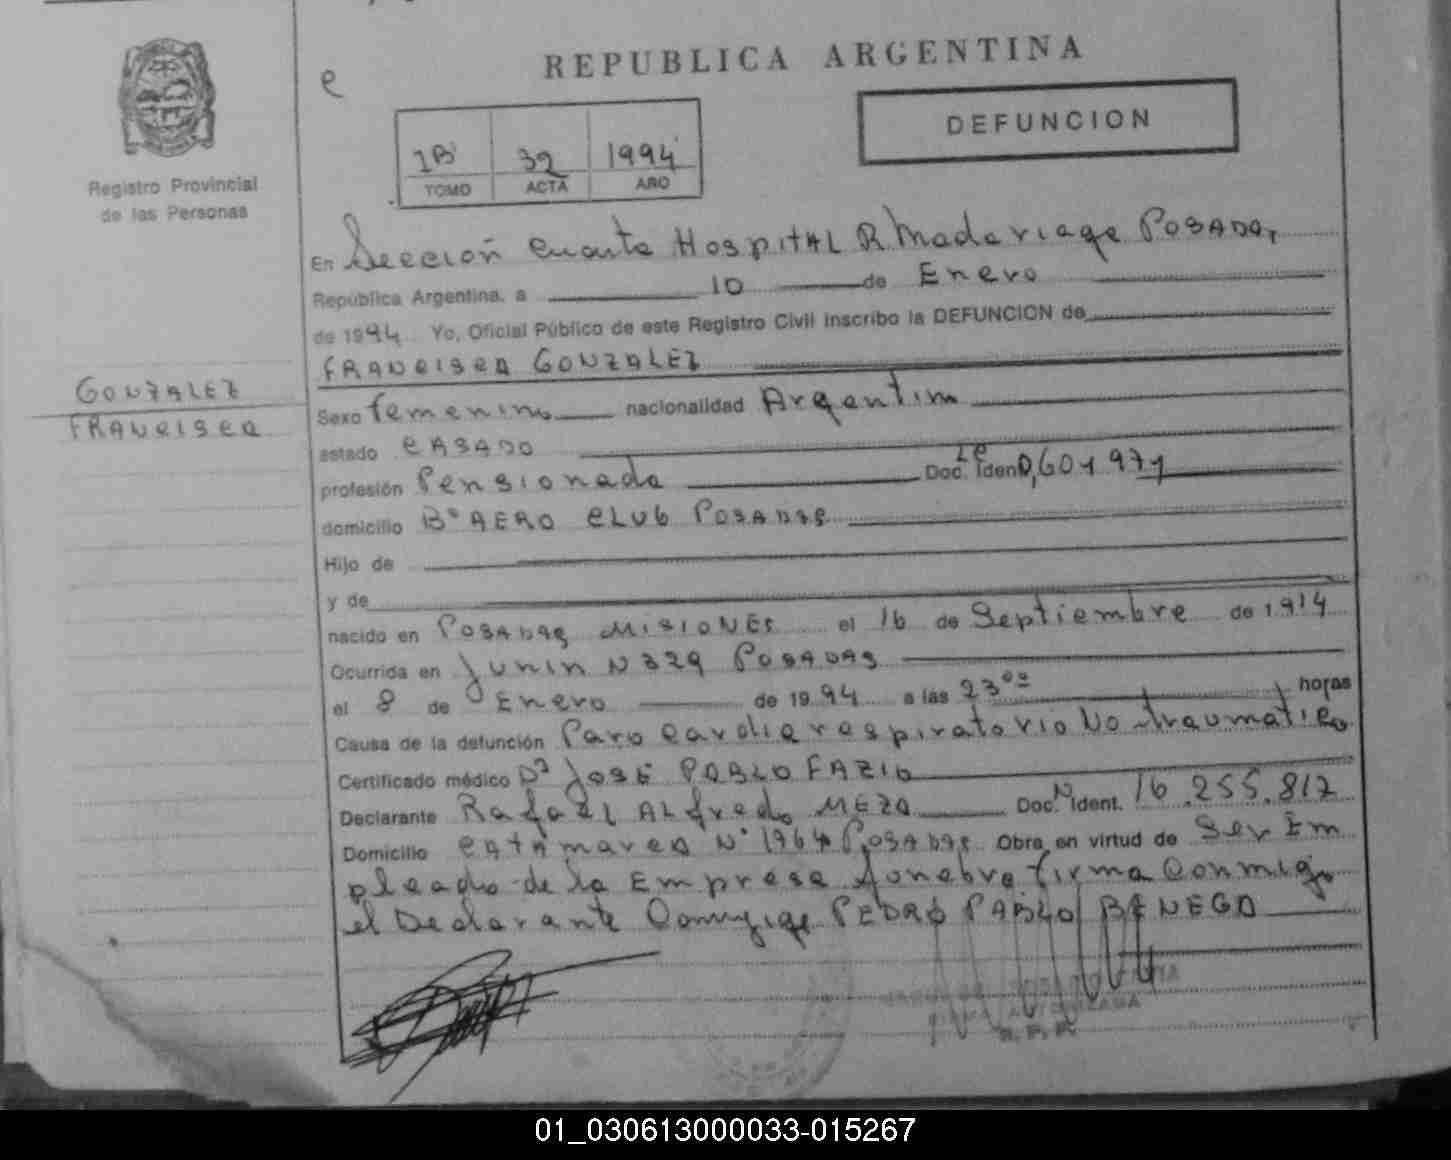 REPUBLICA ARGENTINA
e
DEFUNCION
1B 32 1994
TOMO ACTA AÑO
Registro Provincial
de las Personas
En Sección Cuarta HOSPITAL R Madariaga POSADAS
República Argentina, a 10 de Enero
de 1994 Yo, Oficial Público de este Registro Civil inscribo la DEFUNCION de
FRANCISCA GONZALEZ
GONZALEZ
FRANCISCA
Sexo femenino nacionalidad Argentina
estado CASADO
profesión Pensionada Doc. Iden
domicilio B° AERO CLUB POSADAS
Hijo de
y de
nacido en POSADAS MISIONES el 16 de Septiembre de 1914
Ocurrida en Junin N 329 POSADAS
el 8 de Enero de 1994 a las 23°° horas
Causa de la defunción Paro cardiorespiratorio No traumatico
Certificado médico Dr JOSE PABLO FAZIO
Declarante Rafael Alfredo MEZA Doc. N Ident. 16.255.812
Domicilio CATAMARCA N° 1964 POSADAS Obra en virtud de Ser Em
pleado de la Empresa funebre firma Conmigo
el Declarante PEDRO PABLO
R. P. P.
01_030613000033-015267